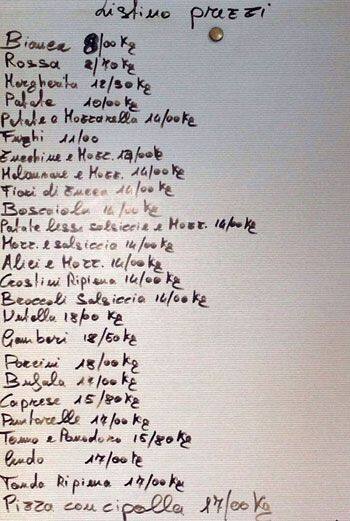 Listino prezzi
Bianca 8/00 Kg
Rossa 8/70 Kg
Margherita 12/50 Kg
Patate 10/00 Kg
Patate e Mozzarella 14/00 Kg
Funghi 11/00
Zucchine e Mozz. 14/00 Kg
Melanzane e Mozz. 14/00 Kg
Fiori di Zucca 14/00 Kg
Boscaiola 14/00 Kg
Patate lesse salsiccia e Mozz. 14/00 Kg
Mozz. e salsiccia 14/00 Kg
Alici e Mozz. 14/00 Kg
Crostini Ripiena 14/00 Kg
Broccoli Salsiccia 14/00 Kg
Nutella 18/00 Kg
Gamberi 18/50 Kg
Porcini 18/00 Kg
Bufala 17/00 Kg
Caprese 15/80 Kg
Puntarelle 17/00 Kg
Tonno e Pomodoro 15/80 Kg
17/00 Kg
Tonda Ripiena 17/00 Kg
Pizza con cipolla 17/00 Kg